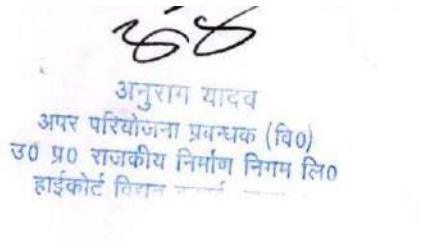 अनुराग यादव
अपर परियोजना प्रबन्धक (वि०)
उ० प्र० राजकीय निर्माण निगम लि०
हाईकोर्ट विद्युत